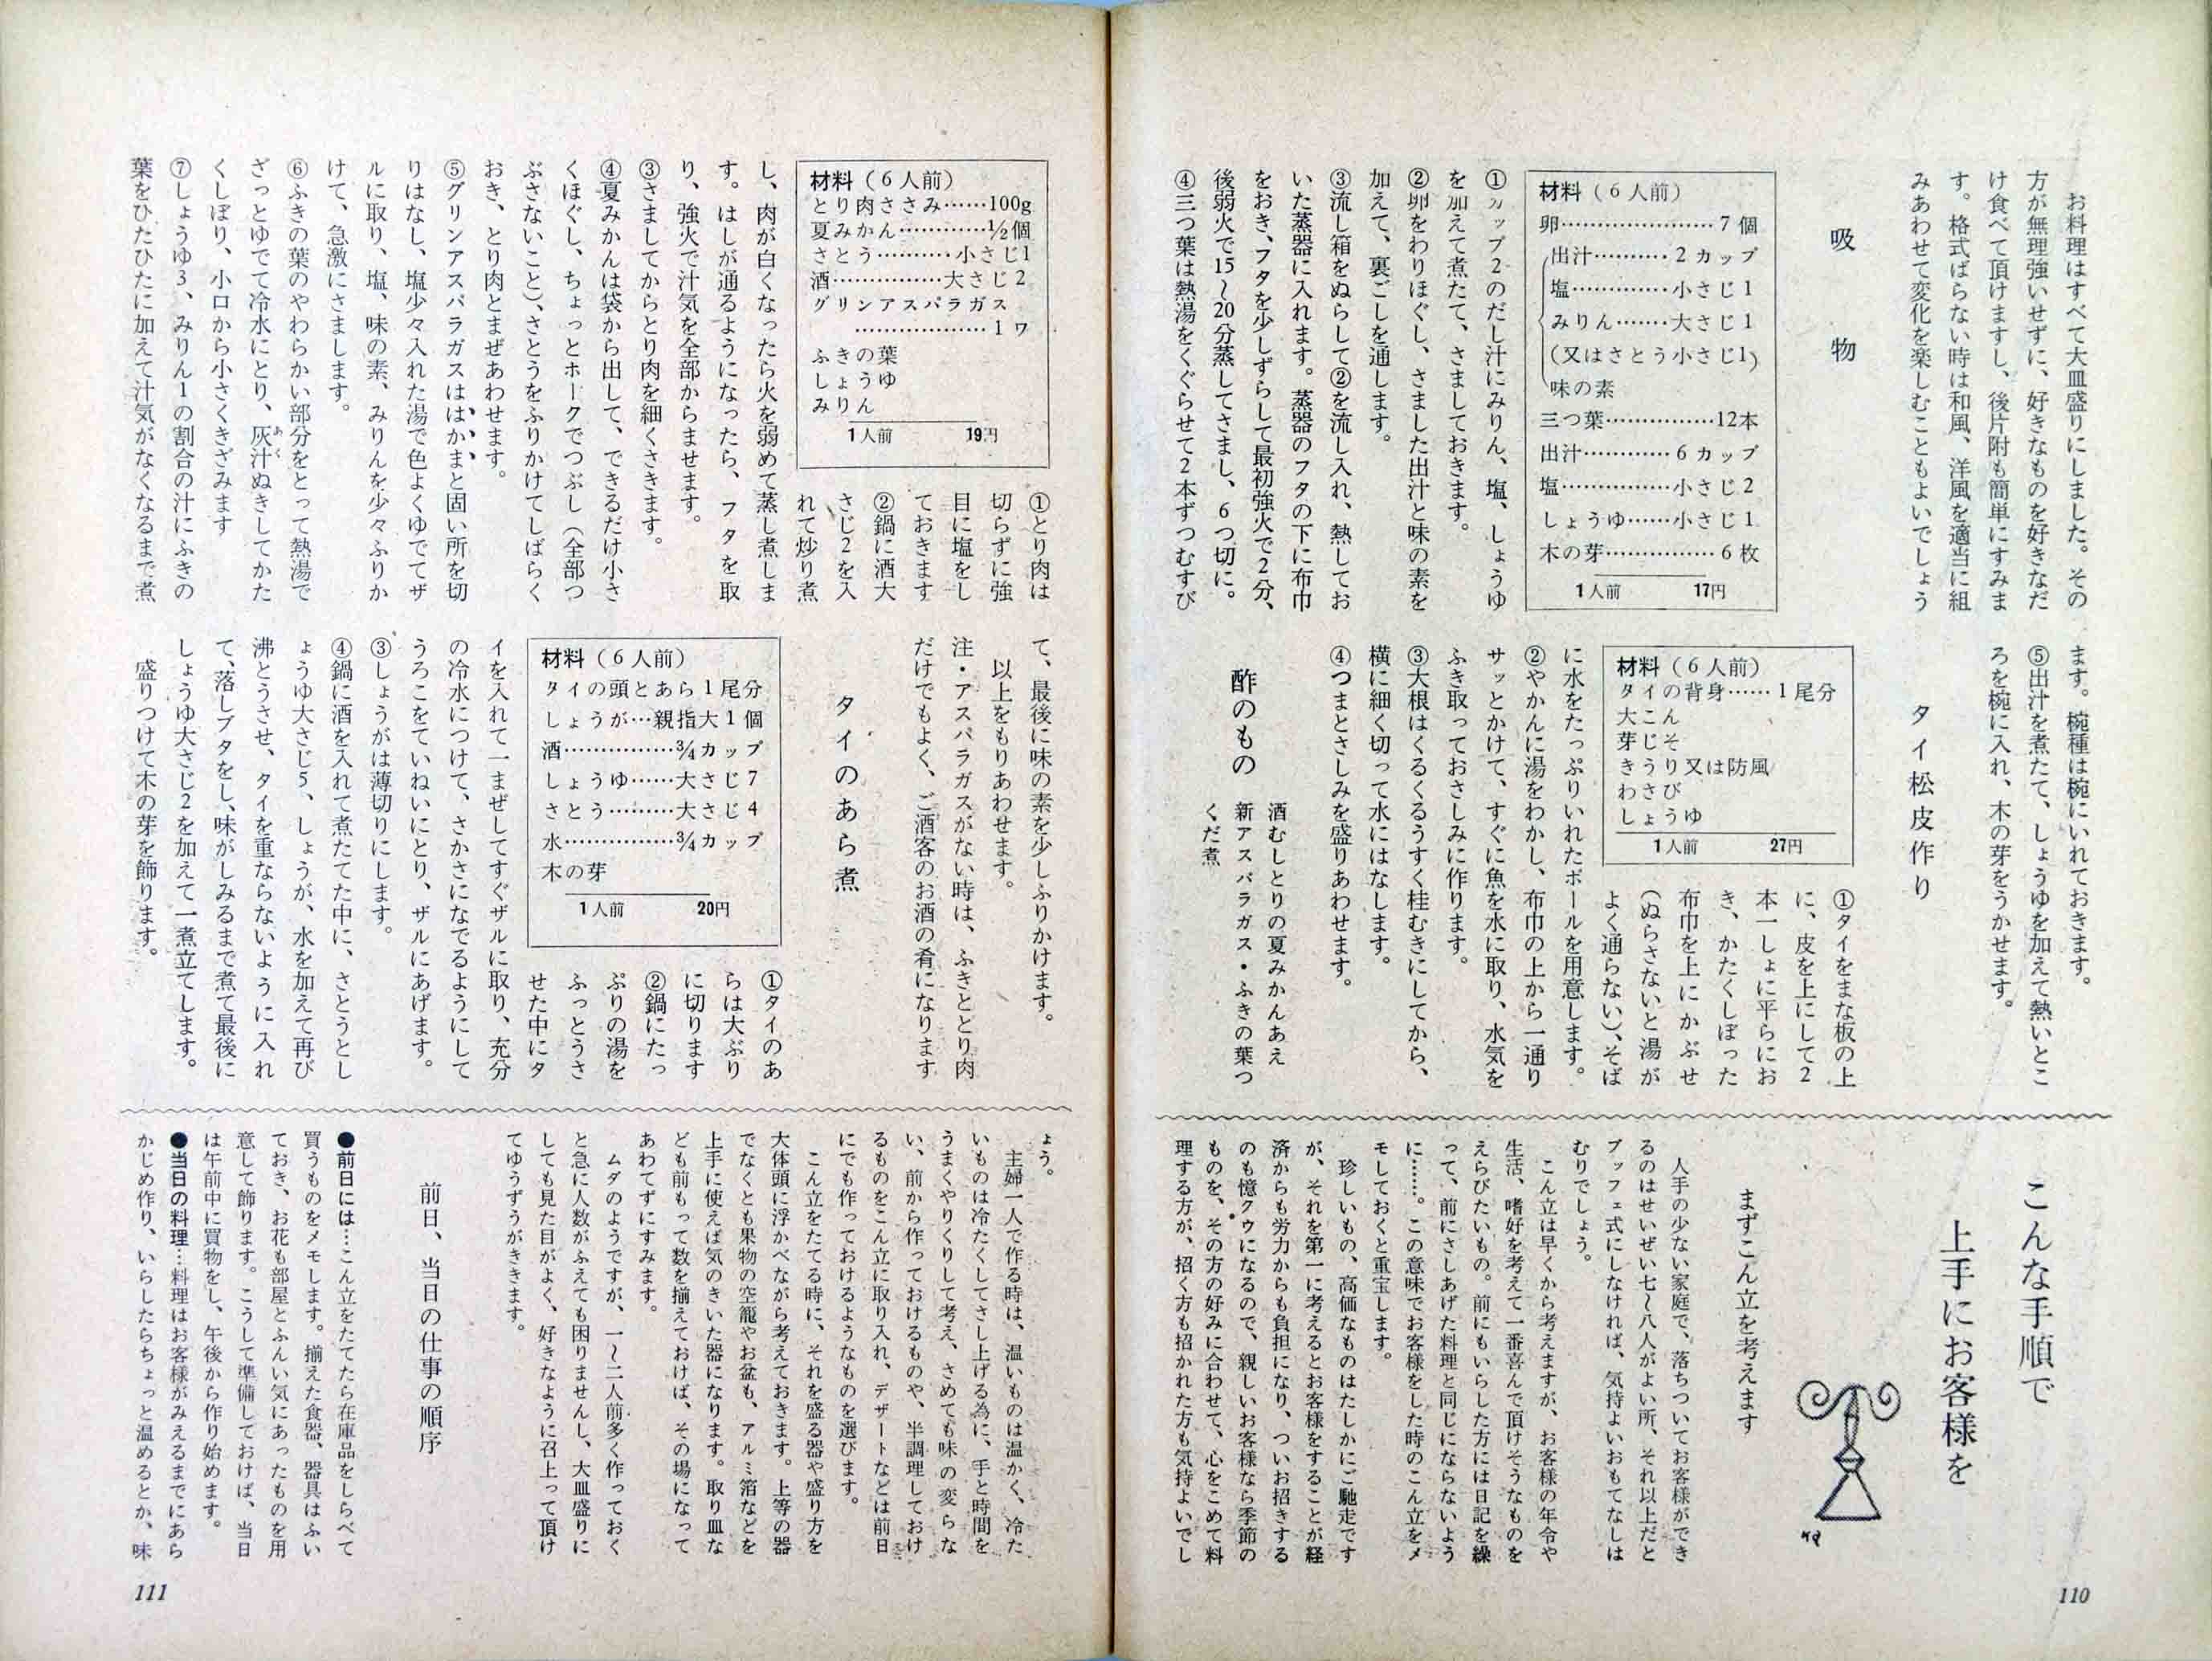 お料理はすべて大皿盛りにしました。その
方が無理強いせずに、好きなものを好きなだ
け食べて頂けますし、後片附も簡単にすみま
す。格式ばらない時は和風、洋風を適当に組
みあわせて変化を楽しむこともよいでしょう
吸物
材料（6人前）
卵…………………7個
出汁………2カップ
塩…………小さじ1
みりん……大さじ1
（又はさとう小さじ1）
味の素
三つ葉……………12本
出汁…………6カップ
塩……………小さじ2
しょうゆ……小さじ1
木の芽……………6枚
1人前 17円
①カップ2のだし汁にみりん、塩、しょうゆ
を加えて煮たて、さましておきます。
②卵をわりほぐし、さました出汁と味の素を
加えて、裏ごしを通します。
③流し箱をぬらして②を流し入れ、熱してお
いた蒸器に入れます。蒸器のフタの下に布巾
をおき、フタを少しずらして最初強火で2分、
後弱火で15〜20分蒸してさまし、6つ切に。
④三つ葉は熱湯をくぐらせて2本ずつむすび
ます。椀種は椀にいれておきます。
⑤出汁を煮たて、しょうゆを加えて熱いとこ
ろを椀に入れ、木の芽をうかせます。
タイ松皮作り
材料（6人前）
タイの背身……1尾分
大こん
芽じそ
きうり又は防風
わさび
しょうゆ
1人前 27円
①タイをまな板の上
に、皮を上にして2
本一しょに平らにお
き、かたくしぼった
布巾を上にかぶせ
（ぬらさないと湯が
よく通らない）、そば
に水をたっぷりいれたボールを用意します。
②やかんに湯をわかし、布巾の上から一通り
サッとかけて、すぐに魚を水に取り、水気を
ふき取っておさしみに作ります。
③大根はくるくるうすく桂むきにしてから、
横に細く切って水にはなします。
④つまとさしみを盛りあわせます。
酢のもの
酒むしとりの夏みかんあえ
新アスパラガス・ふきの葉つ
くだ煮
こんな手順で
上手にお客様を
まずこん立を考えます
人手の少ない家庭で、落ちついてお客様ができ
るのはせいぜい七〜八人がよい所、それ以上だと
ブッフェ式にしなければ、気持よいおもてなしは
むりでしょう。
こん立は早くから考えますが、お客様の年令や
生活、嗜好を考えて一番喜んで頂けそうなものを
えらびたいもの。前にもいらした方には日記を繰
って、前にさしあげた料理と同じにならないよう
に……。この意味でお客様をした時のこん立をメ
モしておくと重宝します。
珍しいもの、高価なものはたしかにご馳走です
が、それを第一に考えるとお客様をすることが経
済からも労力からも負担になり、ついお招きする
のも憶クウになるので、親しいお客様なら季節の
ものを、その方の好みに合わせて、心をこめて料
理する方が、招く方も招かれた方も気持よいでし
110
材料（6人前）
とり肉ささみ……100g
夏みかん…………½個
さとう………小さじ1
酒……………大さじ2
グリンアスパラガス
………………1ワ
ふきの葉
しょうゆ
みりん
1人前 19円
①とり肉は
切らずに強
目に塩をし
ておきます
②鍋に酒大
さじ2を入
れて炒り煮
し、肉が白くなったら火を弱めて蒸し煮しま
す。はしが通るようになったら、フタを取
り、強火で汁気を全部からませます。
③さましてからとり肉を細くさきます。
④夏みかんは袋から出して、できるだけ小さ
くほぐし、ちょっとホークでつぶし（全部つ
ぶさないこと）、さとうをふりかけてしばらく
おき、とり肉とまぜあわせます。
⑤グリンアスパラガスははかまと固い所を切
りはなし、塩少々入れた湯で色よくゆでてザ
ルに取り、塩、味の素、みりんを少々ふりか
けて、急激にさまします。
⑥ふきの葉のやわらかい部分をとって熱湯で
ざっとゆでて冷水にとり、灰汁ぬきしてかた
くしぼり、小口から小さくきざみます
⑦しょうゆ3、みりん1の割合の汁にふきの
葉をひたひたに加えて汁気がなくなるまで煮
て、最後に味の素を少しふりかけます。
以上をもりあわせます。
注・アスパラガスがない時は、ふきととり肉
だけでもよく、ご酒客のお酒の肴になります
タイのあら煮
材料（6人前）
タイの頭とあら1尾分
しょうが…親指大1個
酒……………¾カップ
しょうゆ……大さじ7
さとう………大さじ4
水……………¾カップ
木の芽
1人前 20円
①タイのあ
らは大ぶり
に切ります
②鍋にたっ
ぷりの湯を
ふっとうさ
せた中にタ
イを入れて一まぜしてすぐザルに取り、充分
の冷水につけて、さかさになでるようにして
うろこをていねいにとり、ザルにあげます。
③しょうがは薄切りにします。
④鍋に酒を入れて煮たてた中に、さとうとし
ょうゆ大さじ5、しょうが、水を加えて再び
沸とうさせ、タイを重ならないように入れ
て、落しブタをし、味がしみるまで煮て最後に
しょうゆ大さじ2を加えて一煮立てします。
盛りつけて木の芽を飾ります。
ょう。
主婦一人で作る時は、温いものは温かく、冷た
いものは冷たくしてさし上げる為に、手と時間を
うまくやりくりして考え、さめても味の変らな
い、前から作っておけるものや、半調理しておけ
るものをこん立に取り入れ、デザートなどは前日
にでも作っておけるようなものを選びます。
こん立をたてる時に、それを盛る器や盛り方を
大体頭に浮かべながら考えておきます。上等の器
でなくとも果物の空籠やお盆も、アルミ箔などを
上手に使えば気のきいた器になります。取り皿な
ども前もって数を揃えておけば、その場になって
あわてずにすみます。
ムダのようですが、一〜二人前多く作っておく
と急に人数がふえても困りませんし、大皿盛りに
しても見た目がよく、好きなように召上って頂け
てゆうずうがききます。
前日、当日の仕事の順序
●前日には…こん立をたてたら在庫品をしらべて
買うものをメモします。揃えた食器、器具はふい
ておき、お花も部屋とふんい気にあったものを用
意して飾ります。こうして準備しておけば、当日
は午前中に買物をし、午後から作り始めます。
●当日の料理…料理はお客様がみえるまでにあら
かじめ作り、いらしたらちょっと温めるとか、味
111